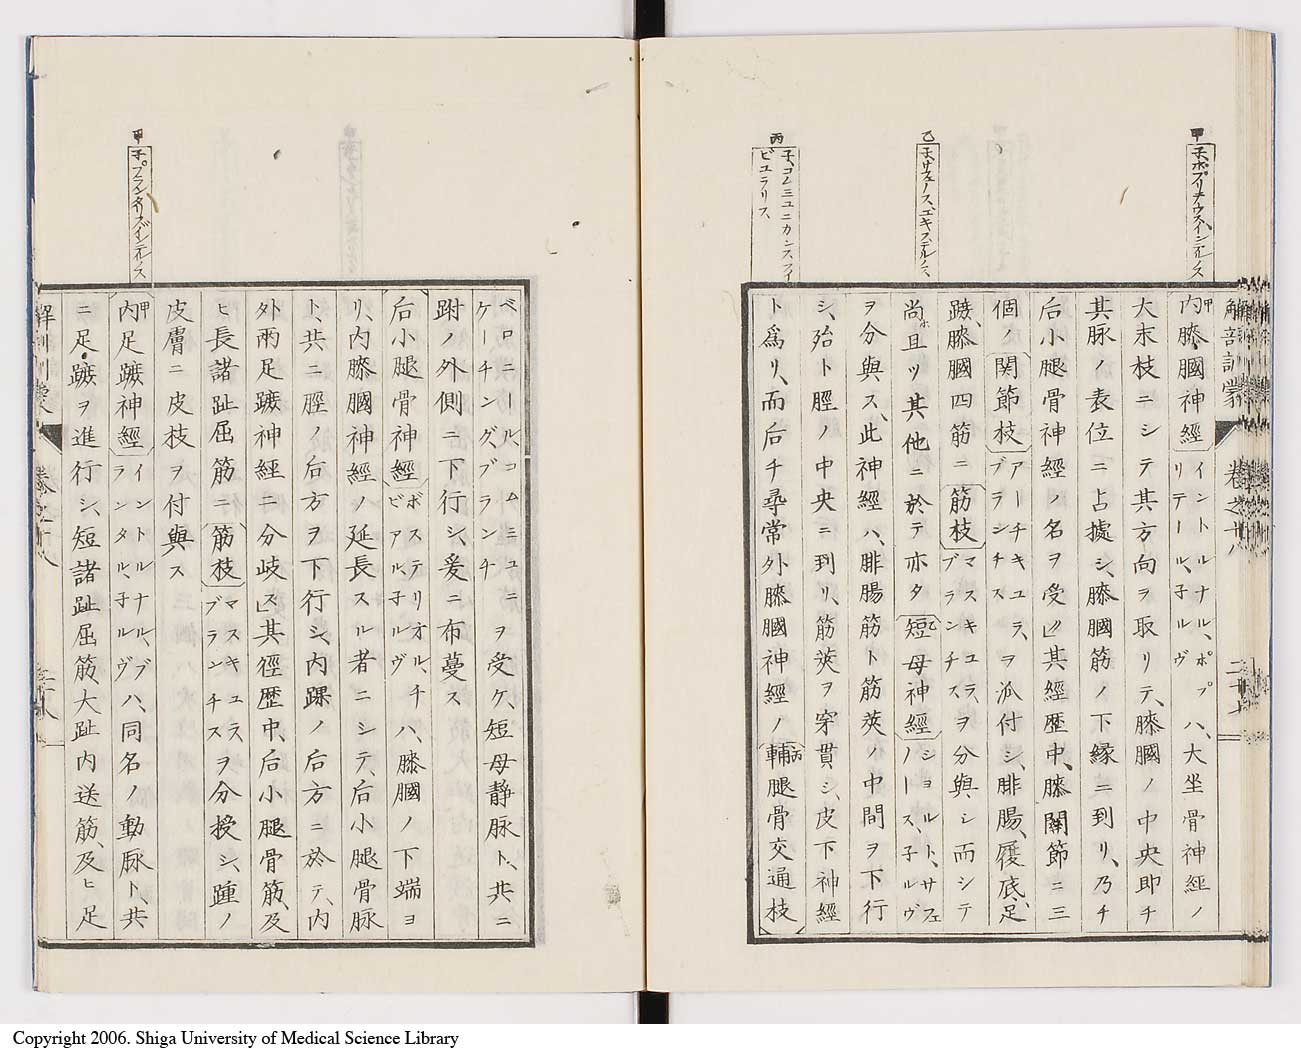 甲
子ポプリチウスインテルノス
乙
子サフェノス、エキステルノス
丙
子、コムミュニカンスフィ
ビュラリス
解剖訓蒙
卷之十八
二十七
甲
内膝膕神經イントルナル、ポプリテール、子ルヴハ、大坐骨神經ノ
大末枝ニシテ其方向ヲ取リテ、膝膕ノ中央即チ
其脉ノ表位ニ占據シ、膝膕筋ノ下縁ニ到リ、乃チ
后小腿骨神經ノ名ヲ受〃其經歴中、膝關節ニ三
個ノ関節枝アーチキュラ、ブランチスヲ派付シ、腓腸、履底、足
蹠、膝膕四筋ニ筋枝マスキュラ、ブランチスヲ分與シ而シテ
尚ホ且ツ其他ニ於テ亦タ乙短母神經ショルト、サフェノース、子ルヴ
ヲ分與ス、此神經ハ、腓腸筋ト筋莢ノ中間ヲ下行
シ、殆ト脛ノ中央ニ到リ、筋莢ヲ穿貫シ、皮下神經
ト爲リ、而后チ尋常外膝膕神經ノ丙輔腿骨交通枝
甲
子プランタリスインテルノス
ペロニール、コムミュニケーチング、ブランチヲ受ケ、短母静脉ト、共ニ
跗ノ外側ニ下行シ、爰ニ布蔓ス
后小腿骨神經ポステリオル、チビアル、子ルヴハ、膝膕ノ下端ヨ
リ、内膝膕神經ノ延長スル者ニシテ、后小腿骨脉
ト、共ニ脛ノ后方ヲ下行シ、内踝ノ后方ニ於テ、内
外兩足蹠神經ニ分岐ス」其徑歴中、后小腿骨筋、及
ヒ長諸趾屈筋ニ筋枝マスキュラ、ブランチスヲ分授シ、踵ノ
皮膚ニ皮枝ヲ付與ス
甲
内足蹠神經イントルナル、プランタル、子ルヴハ、同名ノ動脉ト、共
ニ足蹠ヲ進行シ、短諸趾屈筋、大趾内送筋、及ヒ足
解剖訓蒙
卷之十八
二十八
Copyright 2006. Shiga University of Medical Science Library